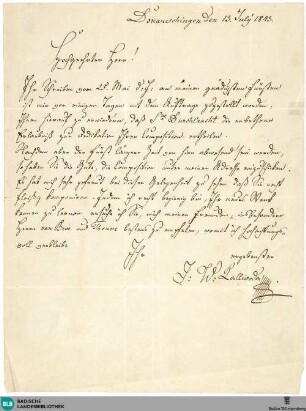 Donaueschingen den 13. July 1843.
Hochgeehrter Herr!
Ihr Schreiben vom 28. Mai d. J. an meinen gnädigsten Fürsten
ist mir vor einigen Tagen mit dem Auftrage zugestellt worden,
Ihnen hierauf zu erwiedern, daß Sr. Durchlaucht die erbethene
Erlaubniß zur Dedikation Ihrer Composition ertheilen.
Nachdem aber der Fürst längere Zeit von hier abwesend sein werden,
so haben Sie die Güte, die Composition unter meiner Adresse
Es hat mich sehr gefreut bei dieser Gelegenheit zu sehen daß Sie recht
fleißig componiren. Indem ich recht begierig bin, Ihr neues Werk
kennen zu lernen ersuche ich Sie, mich meinen Freunden,
Herren und bestens zu empfehlen, womit ich hochachtungs-
voll verbleibe
Ihr
ergebenster
J. W. Kalliwoda
BLB
BADISCHE
LANDESBIBLIOTHEK